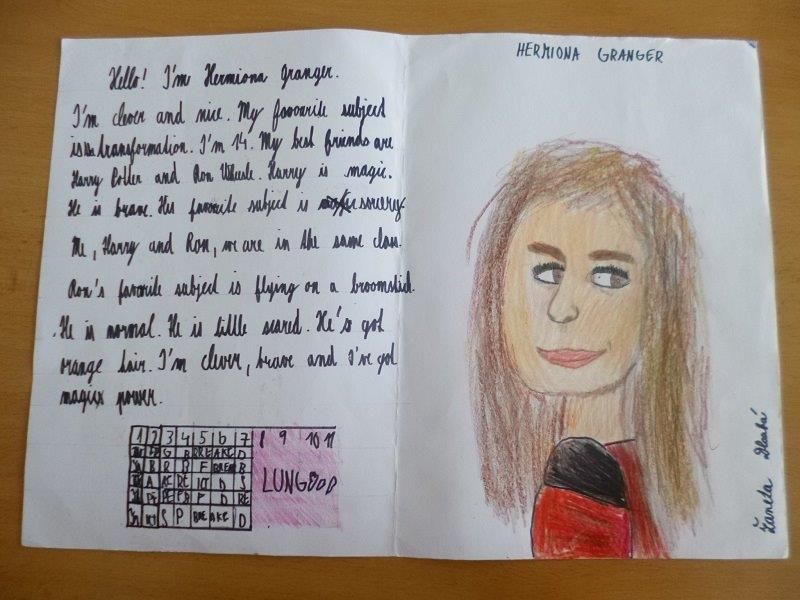 Hello! I'm Hermiona Granger.
I'm clever and nice. My favourite subject
is transformation. I'm 14. My best friends are
Harry Potter and Ron Wheesle. Harry is magic.
He is brave. His favorite subject is sorcery.
Me, Harry and Ron, we are in the same class.
Ron's favorite subject is flying on a broomstick.
He is normal. He is little scared. He's got
orange hair. I'm clever, brave and I've got
magic power.
1 2 3 4 5 6 7 8 9 10 11
G B BREAKE D
B R D F BREAK B
A D S
P D RE
S P BREAKE D
LUNG
HERMIONA GRANGER
Žaneta Dlouhá